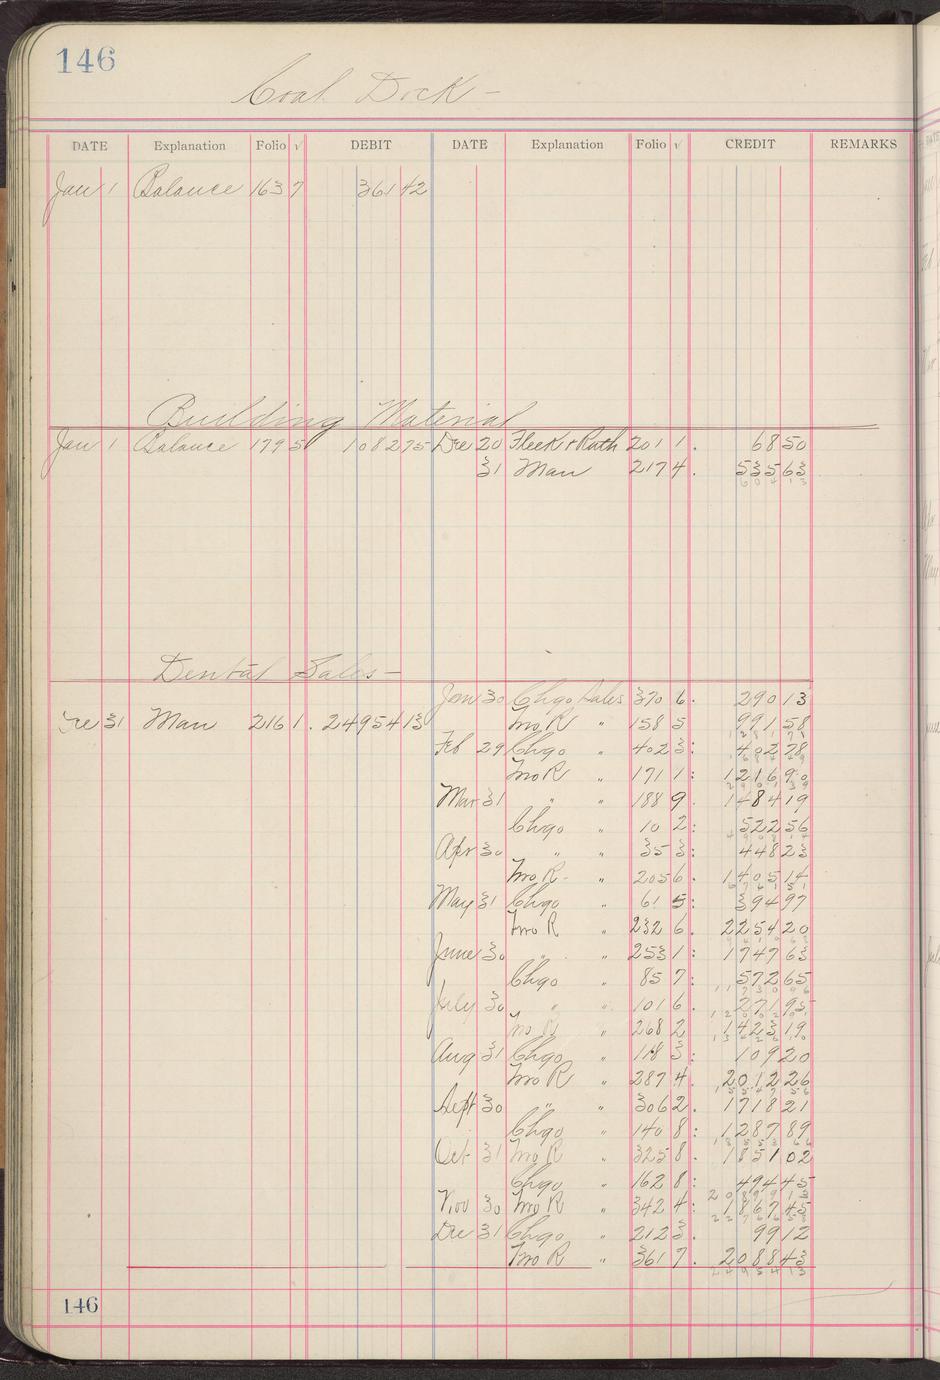 146
Coal Dock -
DATE Explanation Folio √ DEBIT DATE Explanation Folio √ CREDIT REMARKS
Jan 1 Balance 163 7 361 42
Building Material
Jan 1 Balance 179 5 1082 75 Dec 20 Fleek + Ruth 201 1 . 68 50
31 Man 217 4 . 535 63
604 13
Dental Sales -
Jan 30 Chgo Sales 370 6 . 290 13
Dec 31 Man 216 1 . 24954 13 Mo R " 158 5 991 58
1281 71
Feb 29 Chgo " 402 3 : 402 78
1684 49
Mo R " 171 1 : 1216 90
2901 39
Mar 31 " " 188 9 . 1484 19
Chgo " 10 2 : 522 56
Apr 30 " " 35 3 : 448 23
Mo R - " 205 6 . 1405 14
6761 51
May 31 Chgo " 61 5 : 394 97
Mo R " 232 6 . 2254 20
June 30 " " 253 1 : 1747 63
Chgo " 85 7 : 572 65
11730 96
July 30 " " 101 6 . 271 95
Mo R " 268 2 1423 19
Aug 31 Chgo " 118 3 : 109 20
Mo R " 287 4 . 2012 26
Sept 30 " " 306 2 . 1718 21
Chgo " 140 8 : 1287 89
Oct 31 Mo R " 325 8 . 1851 02
Chgo " 162 8 : 494 45
Nov 30 Mo R " 342 4 : 1867 45
Dec 31 Chgo " 212 3 . 99 12
Mo R " 361 7 . 2088 43
24954 13
146